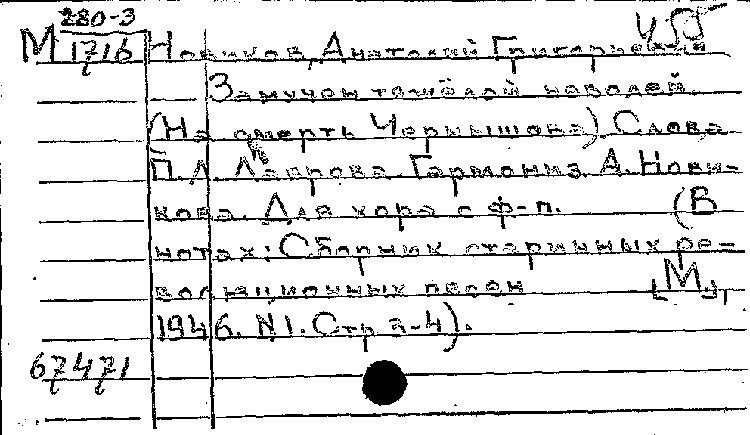 280-3
М 1716
455
Новиков, Анатолий Григорьевич
Замучен тяжёлой неволей
(На смерть Чернышова) Слова
П. Л. Лаврова. Гармониз. А. Нови-
кова. Для хора с ф-п. (В
нотах: Сборник старинных ре-
волюционных песен [М.],
1946. N1. Стр 3-4).
67471